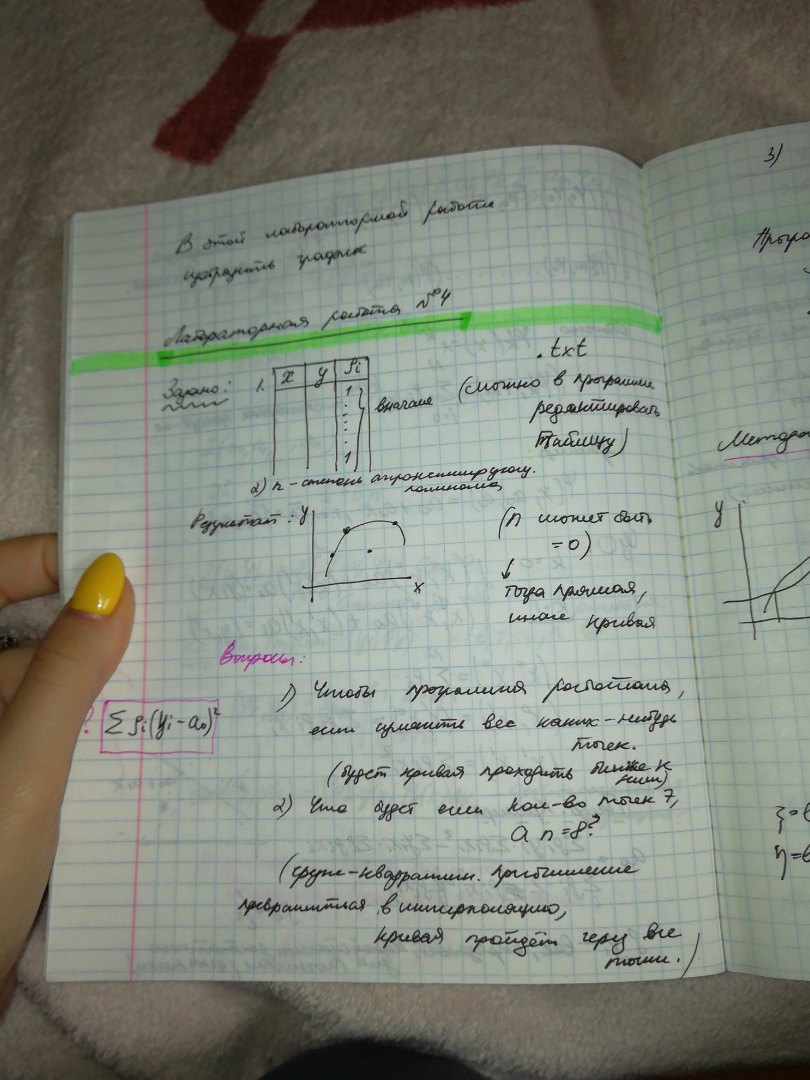 В этой лабораторной работе
изобразить график
Лабораторная работа №4
Задано: 1. x y ρi .txt
1 . . . . 1 } вначале (можно в программе
редактировать
таблицу)
2) n - степень аппроксимирующ.
полинома
Результат: y x (n может быть
=0)
↓
тогда прямая,
иначе кривая
Вопросы:
1) Чтобы программа работала,
? Σρi(yi-a₀)²
если изменить вес каких-нибудь
точек.
(будет кривая проходить ближе к
ним)
2) Что будет если кол-во точек 7,
а n=8?
(средне-квадратичн. приближение
превратится в интерполяцию,
кривая пройдёт через все
точки.)
3)
Програ
Метод
y
ξ=
η=